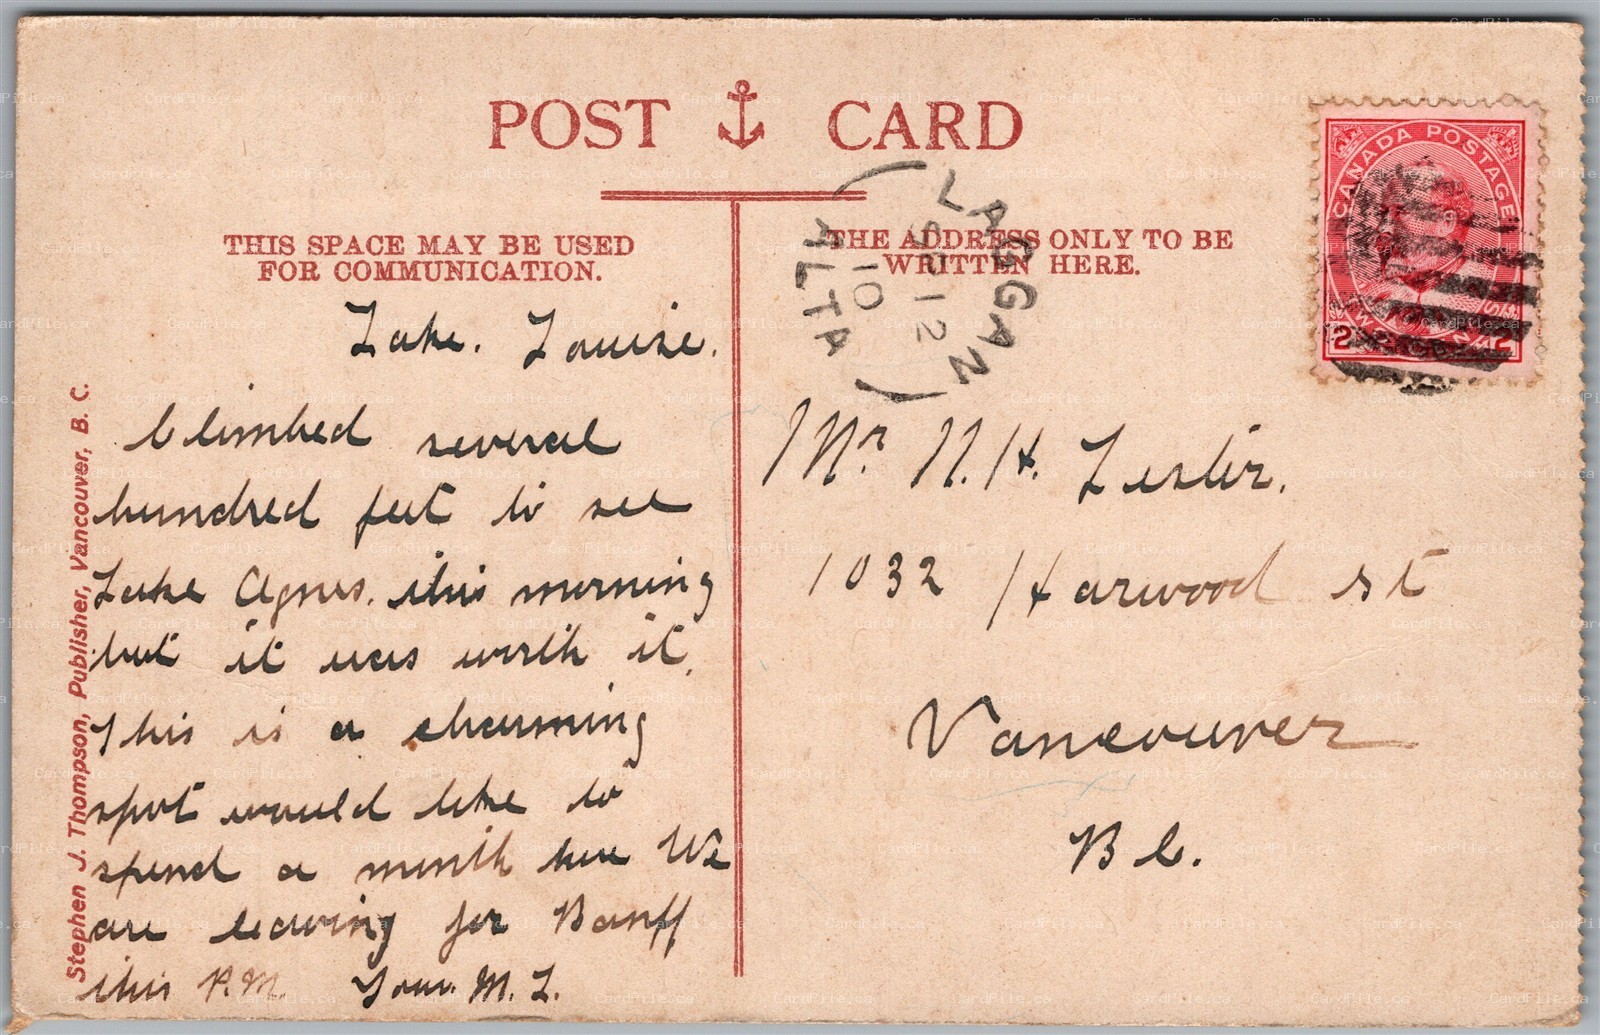 POST CARD
THIS SPACE MAY BE USED
FOR COMMUNICATION.
THE ADDRESS ONLY TO BE
WRITTEN HERE.
CANADA POSTAGE
2 2
LAGGAN
12
10
ALTA
Lake. Louise.
Climbed several
hundred feet to see
Lake Agnes. this morning
but it was worth it.
This is a charming
spot would like to
spend a month here We
are leaving for Banff
this P.M. Your. M. L.
Mr N. H. Lester.
1032 Harwood st
Vancouver
B C.
Stephen J. Thompson, Publisher, Vancouver, B. C.
CardPile.ca